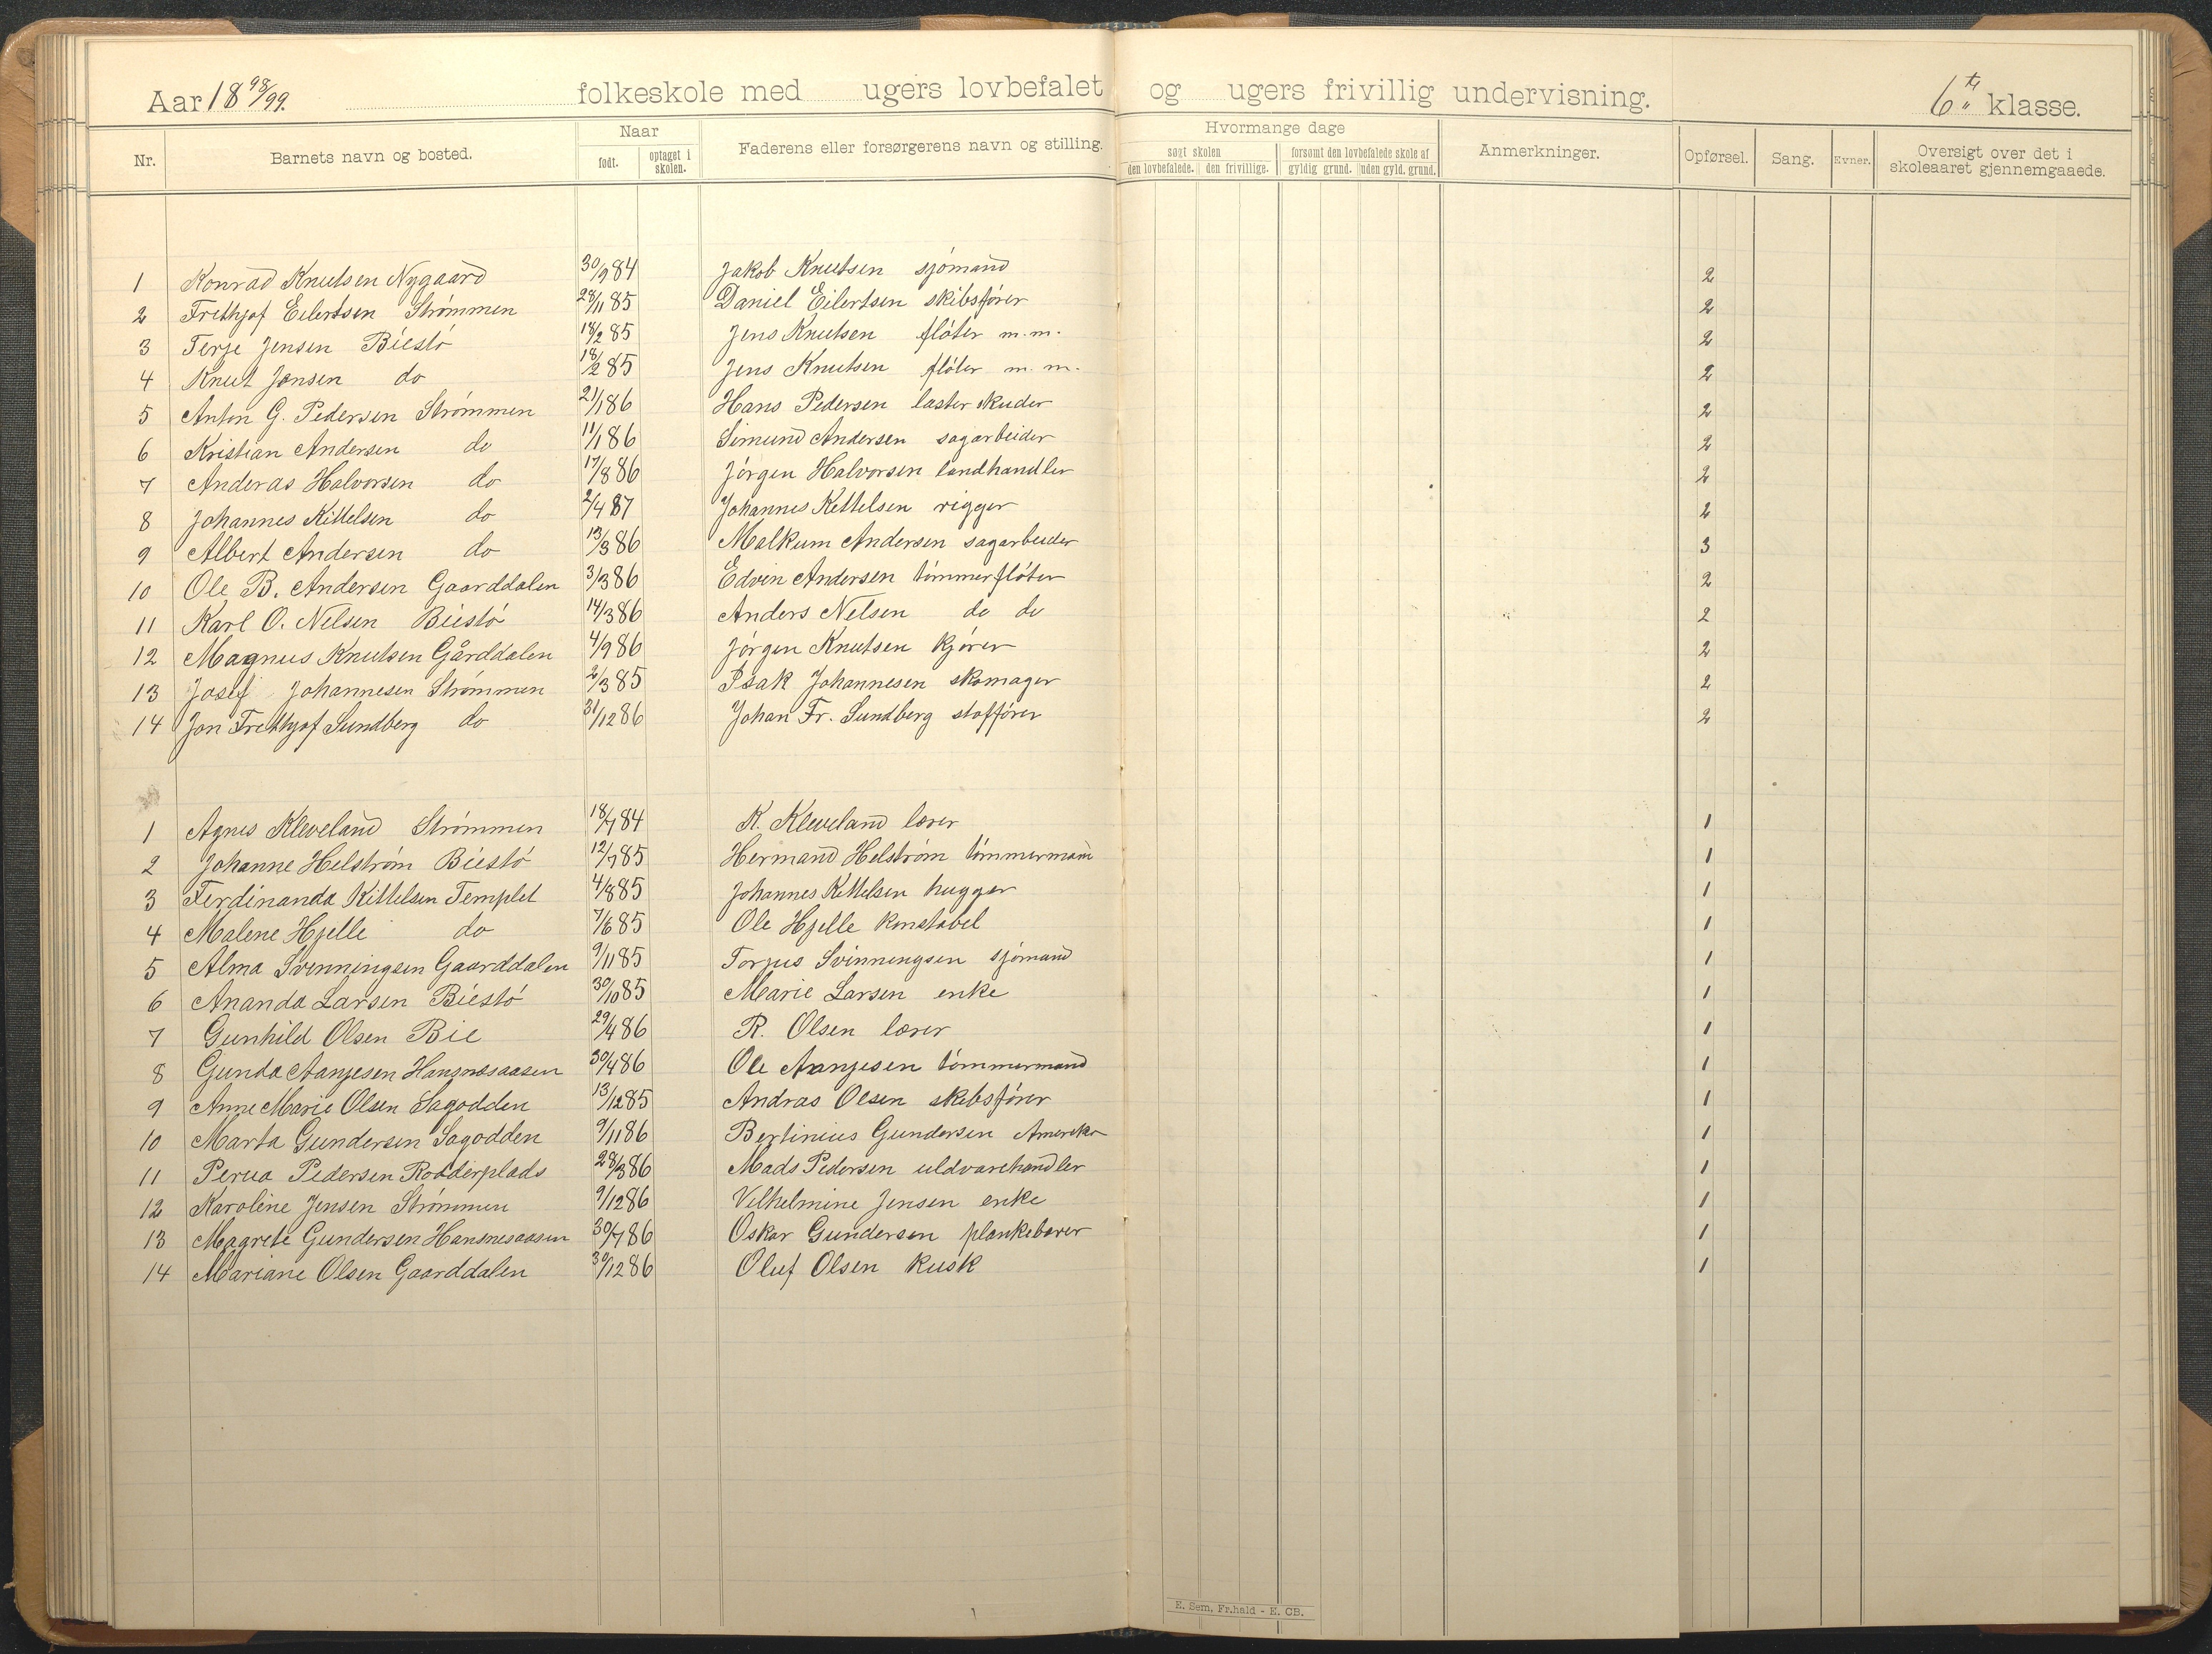 Aar 18 98/99. folkeskole med ugers lovbefalet og ugers frivillig undervisning. 6te klasse.
Nr. Barnets navn og bosted. Naar født. optaget i skolen. Faderens eller forsørgerens navn og stilling. Hvormange dage søgt skolen den lovbefalede. den frivillige. forsømt den lovbefalede skole af gyldig grund. uden gyld. grund. Anmerkninger. Opførsel. Sang. Evner. Oversigt over det i skoleaaret gjennemgaaede.
1 Konrad Knutsen Nygaard 30/9 84 Jakob Knutsen sjömand 2
2 Frithjof Eilertsen Strömmen 28/11 85 Daniel Eilertsen skibsförer 2
3 Terje Jensen Biestö 18/2 85 Jens Knutsen flöter m.m. 2
4 Knut Jensen do 18/2 85 Jens Knutsen flöter m.m. 2
5 Anton G. Pedersen Strömmen 21/1 86 Hans Pedersen laster skuder 2
6 Kristian Andersen do 11/1 86 Simund Andersen sagarbeider 2
7 Anderas Halvorsen do 17/8 86 Jörgen Halvorsen landhandler 2
8 Johannes Kittelsen do 2/4 87 Johannes Kettelsen rigger 2
9 Albert Andersen do 13/3 86 Malkum Andersen sagarbeider 3
10 Ole B. Andersen Gaarddalen 3/3 86 Edvin Andersen tömmerflöter 2
11 Karl O. Nelsen Biestö 14/3 86 Anders Nelsen do do 2
12 Magnus Knutsen Gårddalen 4/9 86 Jörgen Knutsen kjörer 2
13 Josef Johannesen Strömmen 2/3 85 Isak Johannesen skomager 2
14 Jon Frethjof Sundberg do 31/12 86 Johan Fr. Sundberg stafförer 2
1 Agnes Kleveland Strömmen 18/7 84 K. Kleveland lærer 1
2 Johanne Helström Biestö 12/7 85 Hermand Helström tömmermand 1
3 Ferdinanda Kittelsen Templet 4/8 85 Johannes Kettelsen hugger 1
4 Malene Hjelle do 7/6 85 Ole Hjelle konstabel 1
5 Alma Svenningsen Gaarddalen 9/11 85 Torjus Svinningsen sjömand 1
6 Ananda Larsen Biestö 30/10 85 Marie Larsen enke 1
7 Gunhild Olsen Bie 29/4 86 R. Olsen lærer 1
8 Gunda Aanjesen Hansnesaasen 30/4 86 Ole Aanjesen tömmermand 1
9 Anne Marie Olsen Sagodden 13/12 85 Andras Olsen skibsförer 1
10 Marta Gundersen Sagodden 9/11 86 Bertinius Gundersen Amerika 1
11 Perua Pedersen Rodderplads 28/3 86 Mads Pedersen uldvarehandler 1
12 Karoline Jensen Strömmen 9/12 86 Vilhelmine Jensen enke 1
13 Magrete Gundersen Hansnesaasen 30/7 86 Oskar Gundersen plankebærer 1
14 Mariane Olsen Gaarddalen 30/12 86 Oluf Olsen kusk 1
E. Sem, Fr.hald - E. CB.